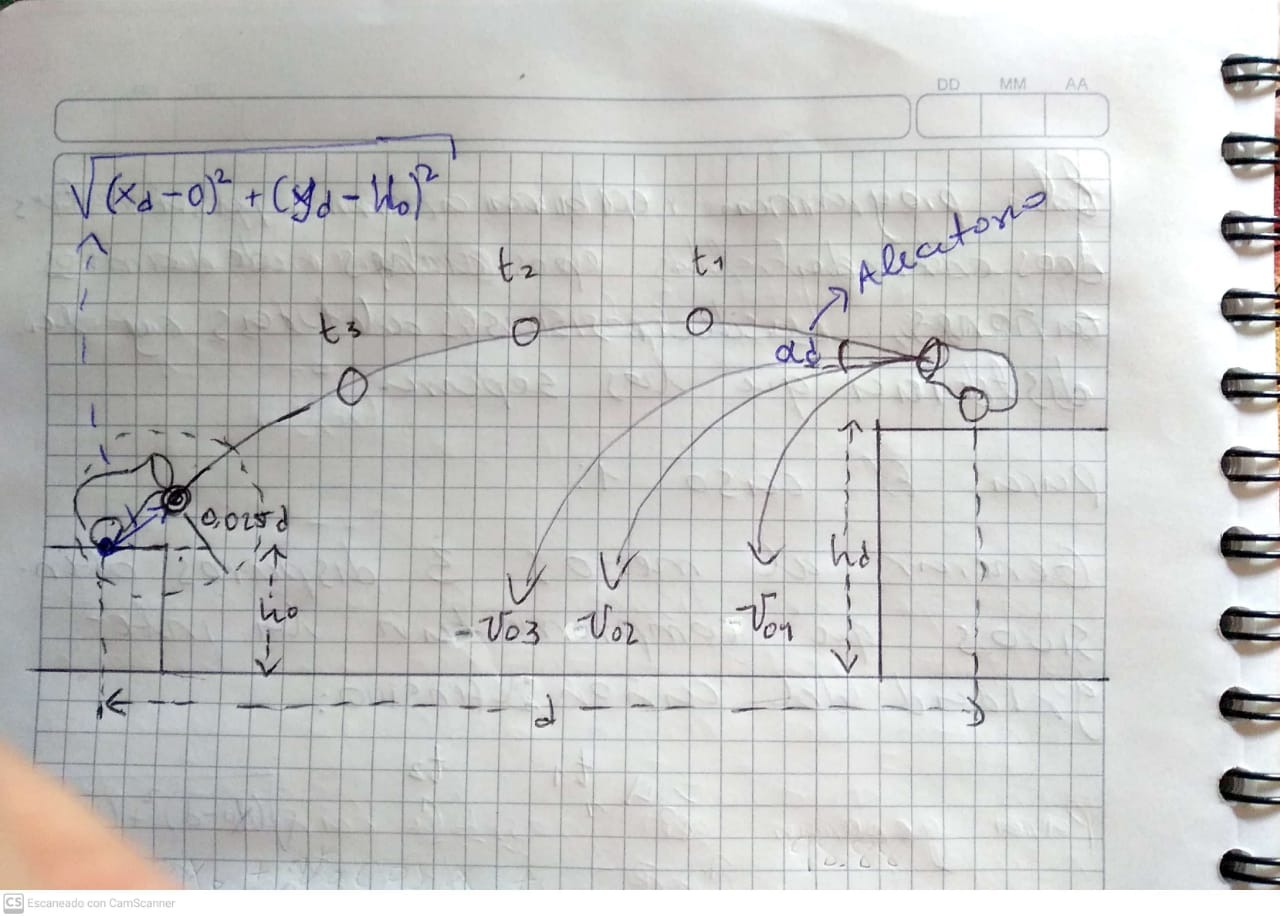 DD MM AA
√(x_d - 0)² + (y_d - H_0)²
Aleatorio
t_2
t_1
t_3
α_d
0,025d
h_0
h_d
-V_03
-V_02
-V_01
d
CS Escaneado con CamScanner